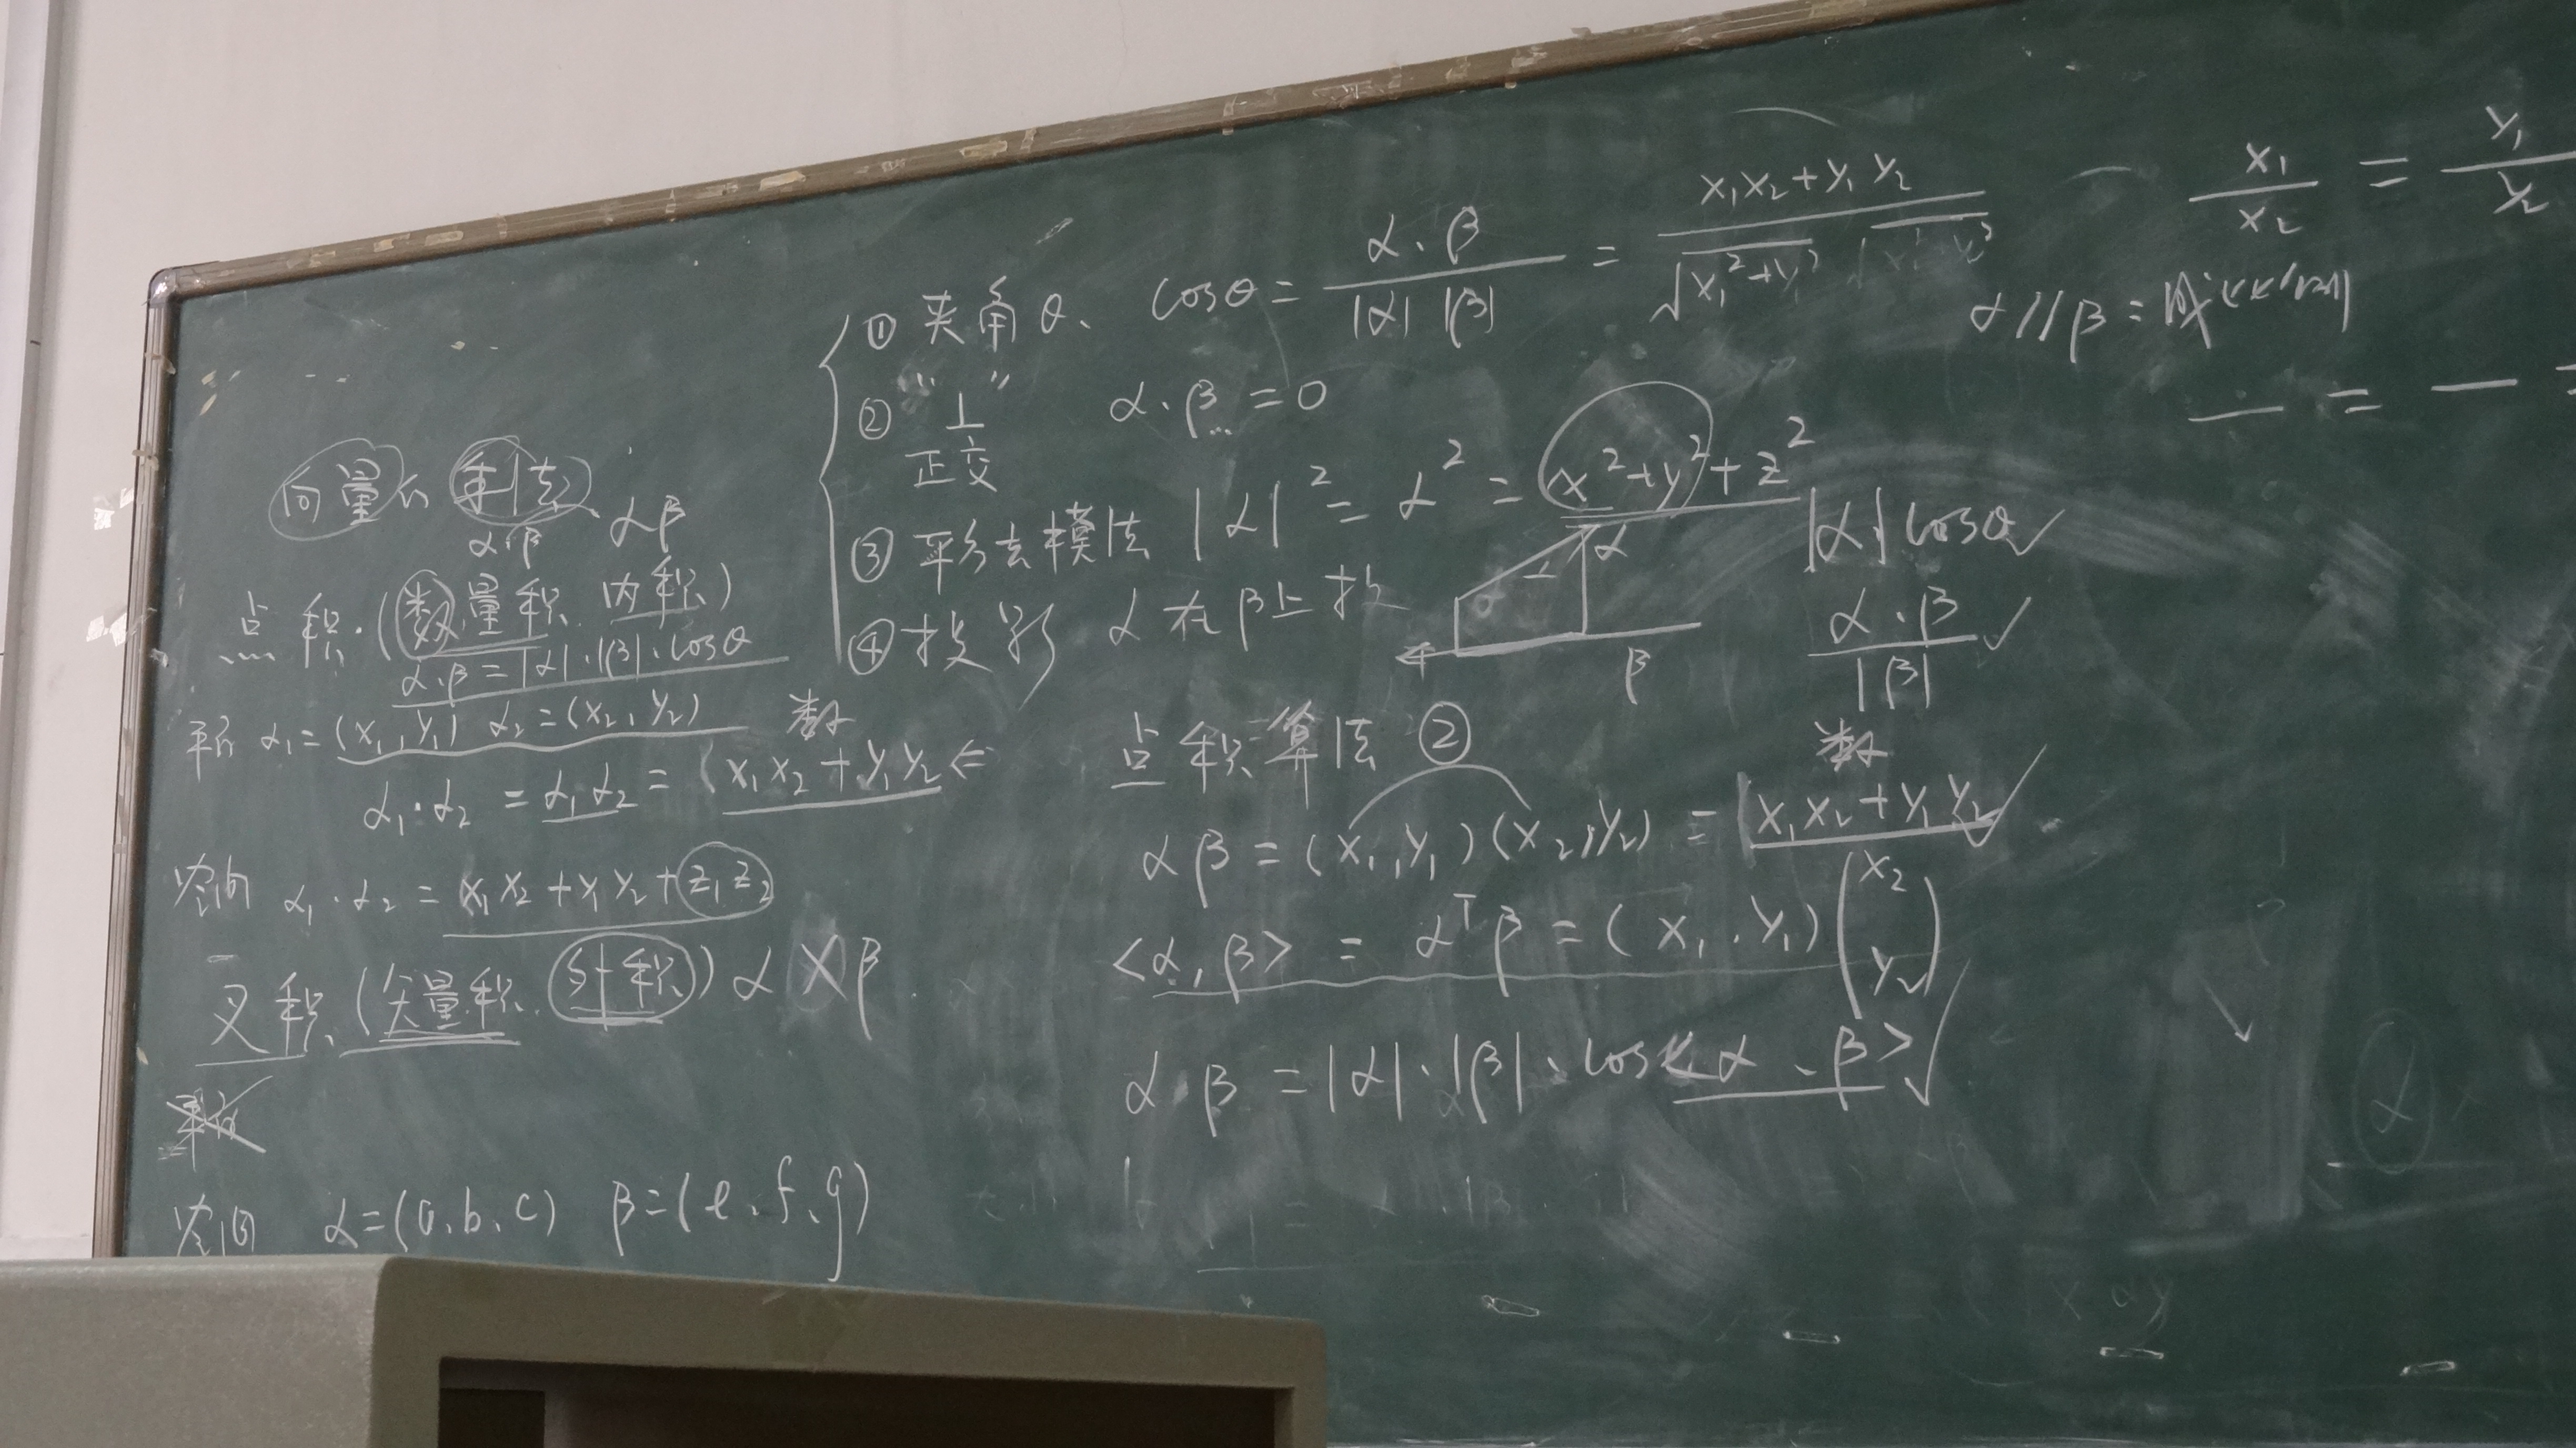 向量的乘法
α·β αβ
点积.(数量积、内积)
α·β=|α|·|β|·cosθ
平面 α₁=(x₁,y₁) α₂=(x₂,y₂)
数
α₁·α₂ = α₁α₂ = x₁x₂+y₁y₂ ⇐
空间 α₁·α₂ = x₁x₂+y₁y₂+z₁z₂
叉积(矢量积、外积) α×β
空间 α=(a、b、c) β=(e、f、g)
① 夹角θ、 cosθ = α·β / |α| |β| = x₁x₂+y₁y₂ / √x₁²+y₁² √x₂²+y₂²
② "⊥" α·β=0
正交
③ 平方去模法 |α|² = α² = x²+y²+z²
④ 投影 α在β上投
α
β
|α|cosθ✓
α·β / |β| ✓
点积算法②
数
αβ = (x₁,y₁)(x₂,y₂) = x₁x₂+y₁y₂ ✓
<α,β> = αᵀβ = (x₁,y₁)(x₂ y₂)
α·β = |α|·|β|·cos<α、β> ✓
x₁/x₂ = y₁/y₂
α//β: 成
— = — =
α